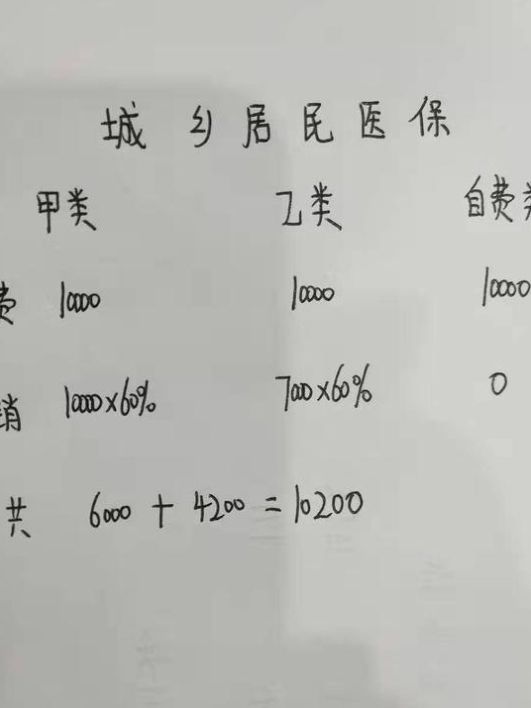 城乡居民医保
甲类 乙类 自费类
费 10000 10000 10000
销 10000×60% 7000×60% 0
共 6000 + 4200 = 10200